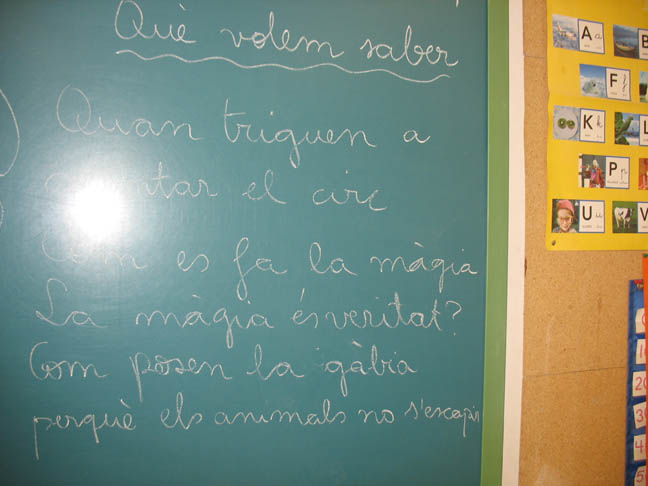 Què volem saber
Quan triguen a
el circ
Com es fa la màgia
La màgia ésveritat?
Com posen la gàbia
perquè els animals no s'escapin
A
F
K
P
U